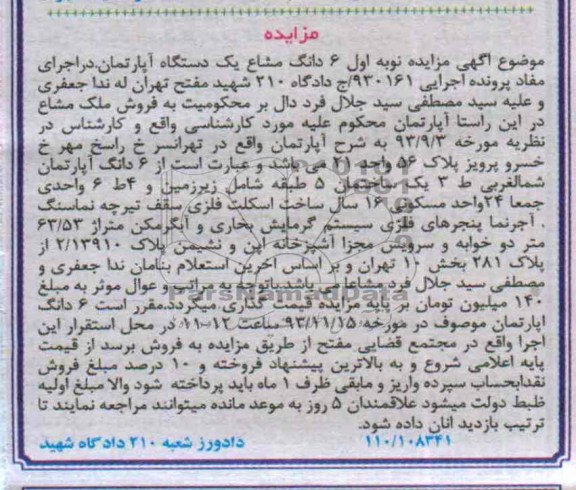 مزایده
موضوع آگهی مزایده نوبه اول ۶ دانگ مشاع یک دستگاه آپارتمان.دراجرای
مفاد پرونده اجرایی ۹۳۰۱۶۱/ج دادگاه ۲۱۰ شهید مفتح تهران له ندا جعفری
و علیه سید مصطفی سید جلال فرد دال بر محکومیت به فروش ملک مشاع
در این راستا آپارتمان محکوم علیه مورد کارشناسی واقع و کارشناس در
نظریه مورخه ۹۳/۹/۳ به شرح آپارتمان واقع در تهرانسر خ راسخ مهر خ
خسرو پرویز پلاک ۵۶ واحد ۲۱ می باشد و عبارت است از ۶ دانگ آپارتمان
شمالغربی ط ۳ یک ساختمان ۵ طبقه شامل زیرزمین و ۴ط ۶ واحدی
جمعا ۲۴واحد مسکونی ۱۶ سال ساخت اسکلت فلزی سقف تیرچه نماسنگ
. آجرنما پنجرهای فلزی سیستم گرمایش بخاری و آبگرمکن متراژ ۶۳/۵۳
متر دو خوابه و سرویس مجزا آشپزخانه اپن و نشیمن پلاک ۲/۱۳۹۱۰ از
پلاک ۲۸۱ بخش ۱۰ تهران و بر اساس آخرین استعلام بنامان ندا جعفری و
مصطفی سید جلال فرد مشاعا می باشد باتوجه به مراتب و عوال موثر به مبلغ
۱۴۰ میلیون تومان بر پایه مزایده قیمت گذاری میگردد.مقرر است ۶ دانگ
اپارتمان موصوف در مورخه ۹۳/۱۱/۱۵ ساعت ۱۲-۱۱ در محل استقرار این
اجرا واقع در مجتمع قضایی مفتح از طریق مزایده به فروش برسد از قیمت
پایه اعلامی شروع و به بالاترین پیشنهاد فروخته و ۱۰ درصد مبلغ فروش
نقدابحساب سپرده واریز و مابقی ظرف ۱ ماه باید پرداخته شود والا مبلغ اولیه
ظبط دولت میشود علاقمندان ۵ روز به موعد مانده میتوانند مراجعه نمایند تا
ترتیب بازدید انان داده شود.
۱۱۰/۱۰۸۳۴۱ دادورز شعبه ۲۱۰ دادگاه شهید
ParsNamadData